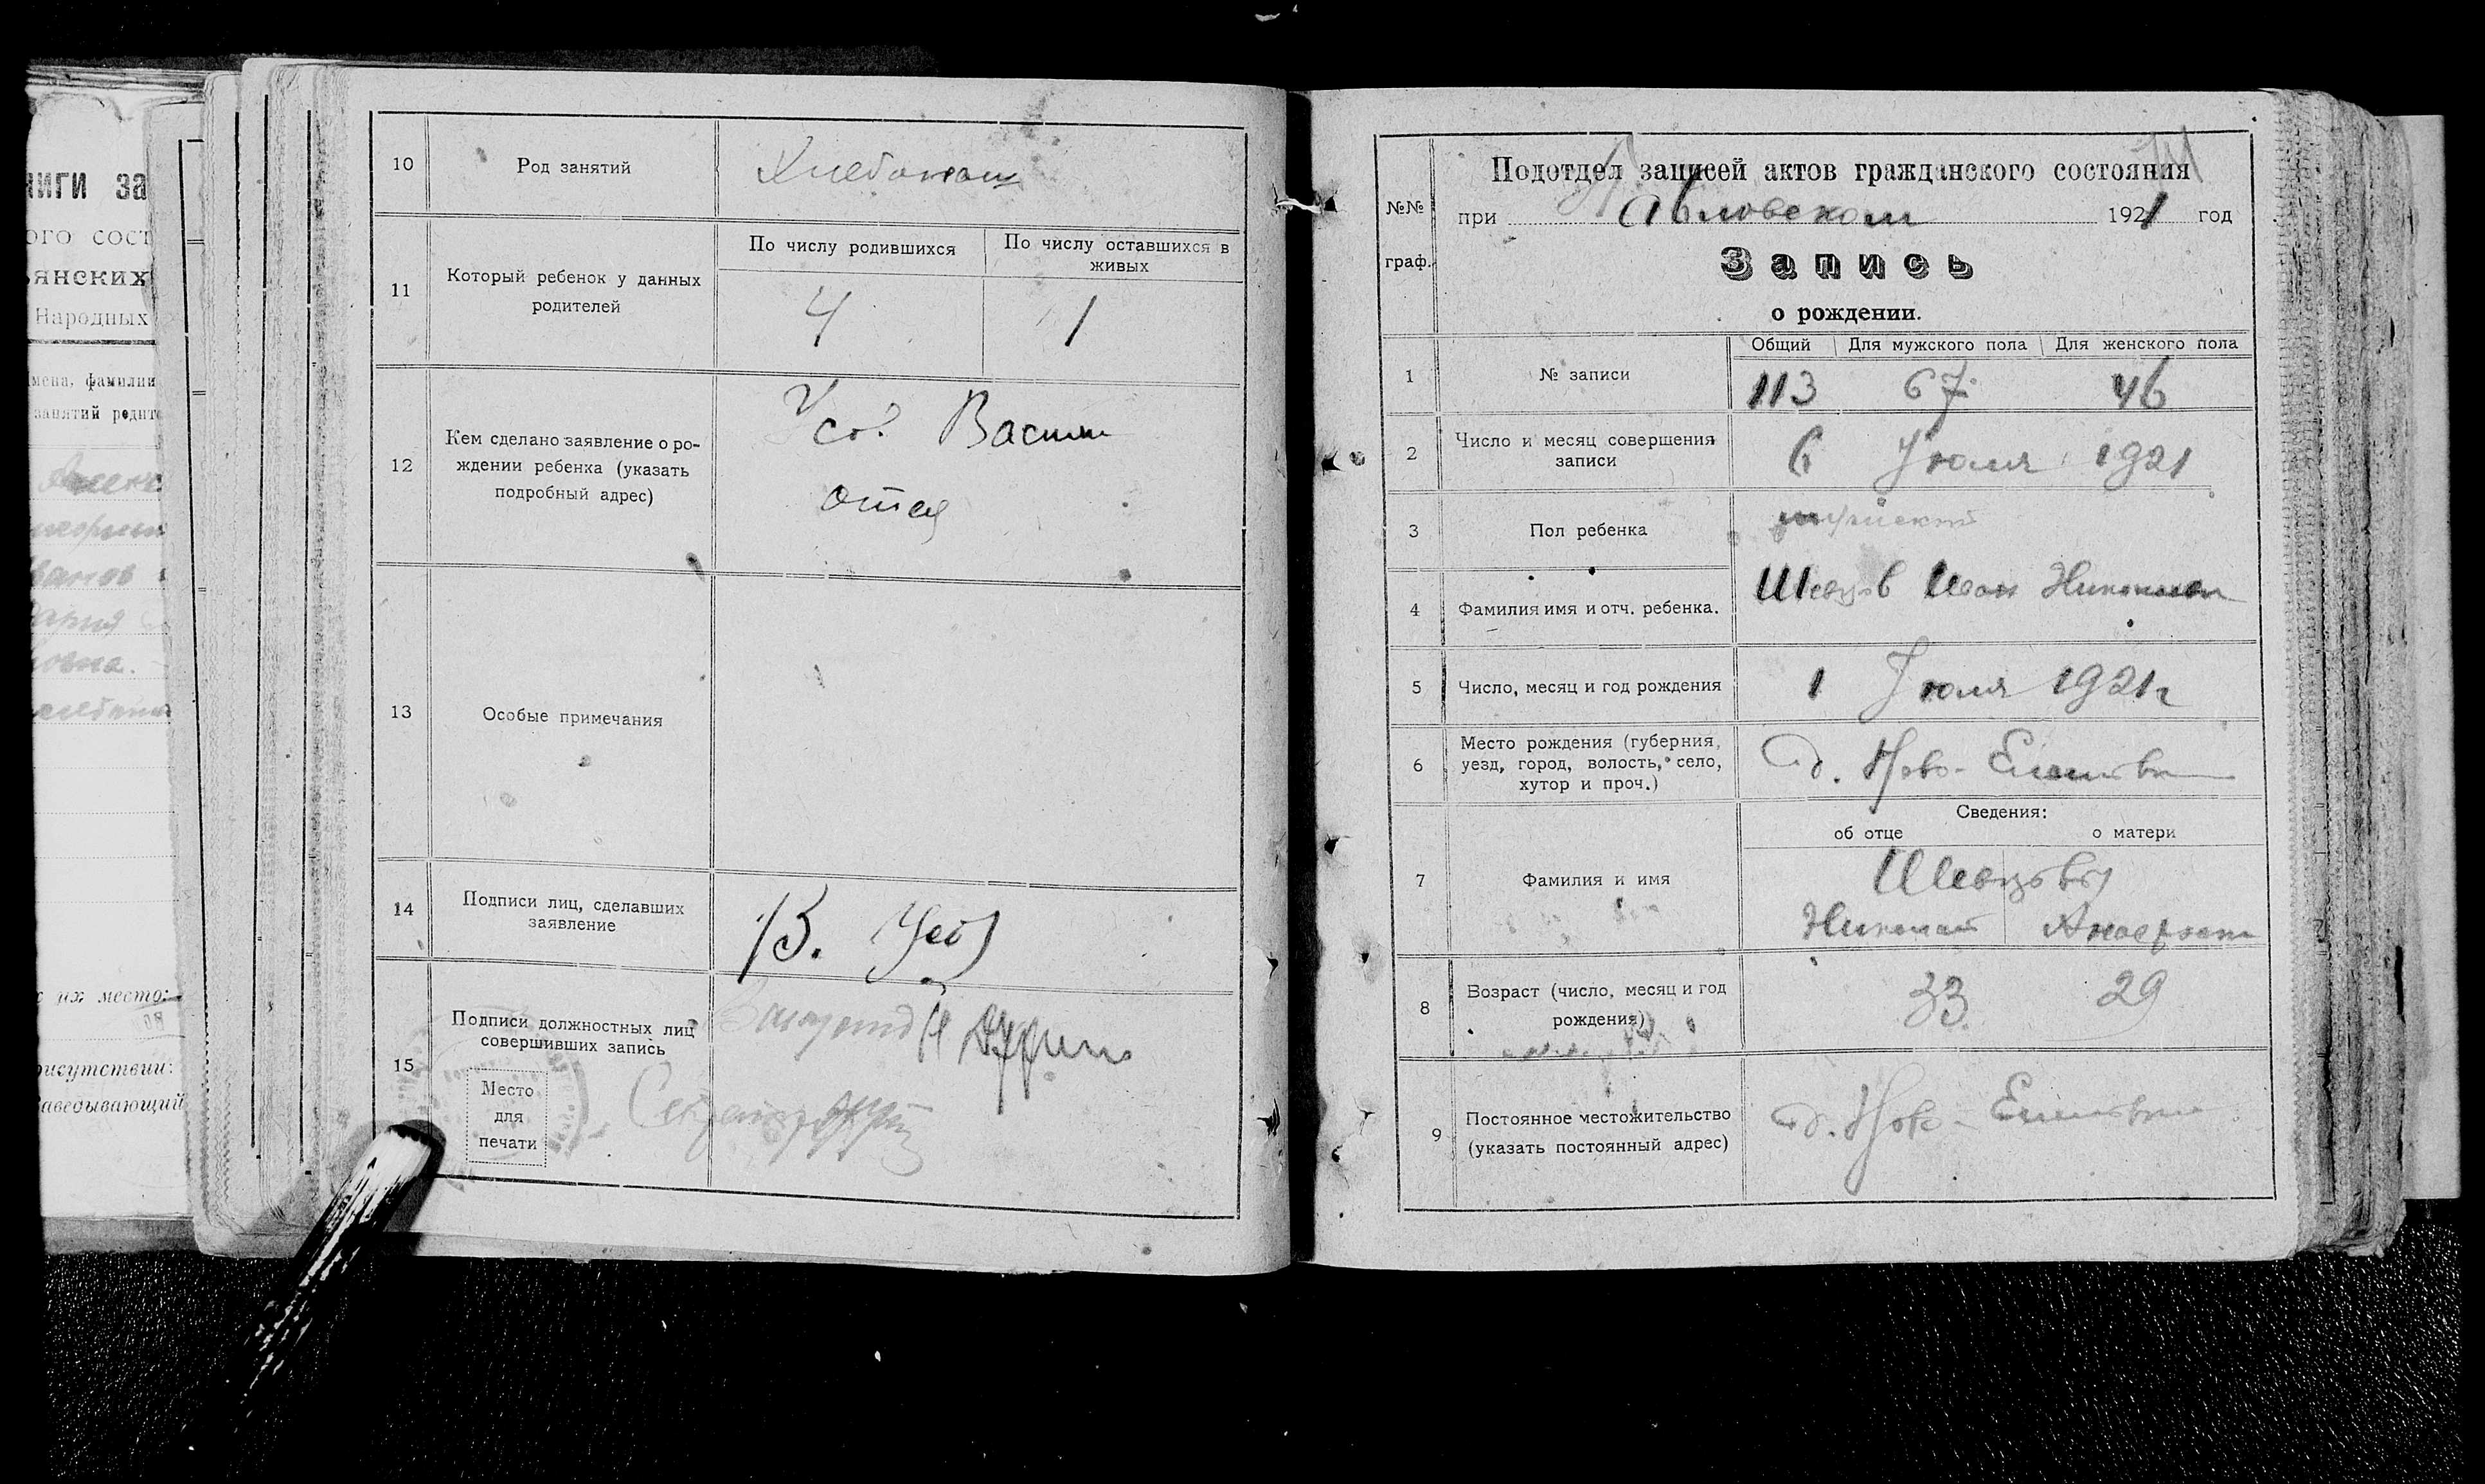 ниги за
ого сост
янских
Народных
мена, фамилии
занятий родит
их место:
рисутствии:
Заведывающий
10 Род занятий Хлебопаш
11 Который ребенок у данных родителей
По числу родившихся По числу оставшихся в живых
4 1
12 Кем сделано заявление о ро-
ждении ребенка (указать
подробный адрес)
Усов Васили
отец
13 Особые примечания
14 Подписи лиц, сделавших
заявление
В. Усов
15 Подписи должностных лиц
совершивших запись
Место
для
печати
Секретарь
№№
граф.
Подотдел записей актов гражданского состояния
при Павловском 1921 год
Запись
о рождении.
Общий Для мужского пола Для женского пола
1 № записи 113 67 46
2 Число и месяц совершения
записи
6 Июля 1921
3 Пол ребенка мужской
4 Фамилия имя и отч. ребенка. Шевцов Иван Николаев
5 Число, месяц и год рождения 1 Июля 1921 г
6 Место рождения (губерния,
уезд, город, волость, село,
хутор и проч.)
д. Ново-
Сведения:
об отце о матери
7 Фамилия и имя
Шевцовы
Николай
8 Возраст (число, месяц и год
рождения)
33 29
9 Постоянное местожительство
(указать постоянный адрес)
д. Ново-